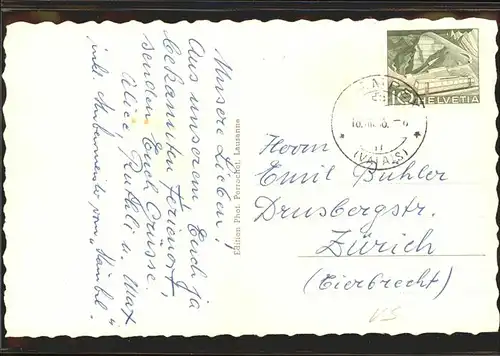 Unsere Lieben!
Aus unserem Euch ja
bekannten Ferienort,
senden Euch Grüsse.
Alice, Ruthli u. Max
inkl. vom „Stämbel“.
Edition Phot. Perrochet, Lausanne
10
HELVETIA
(VALAIS)
Herrn
Emil Bühler
Drusbergstr.
Zürich
(Eierbrecht)
VS